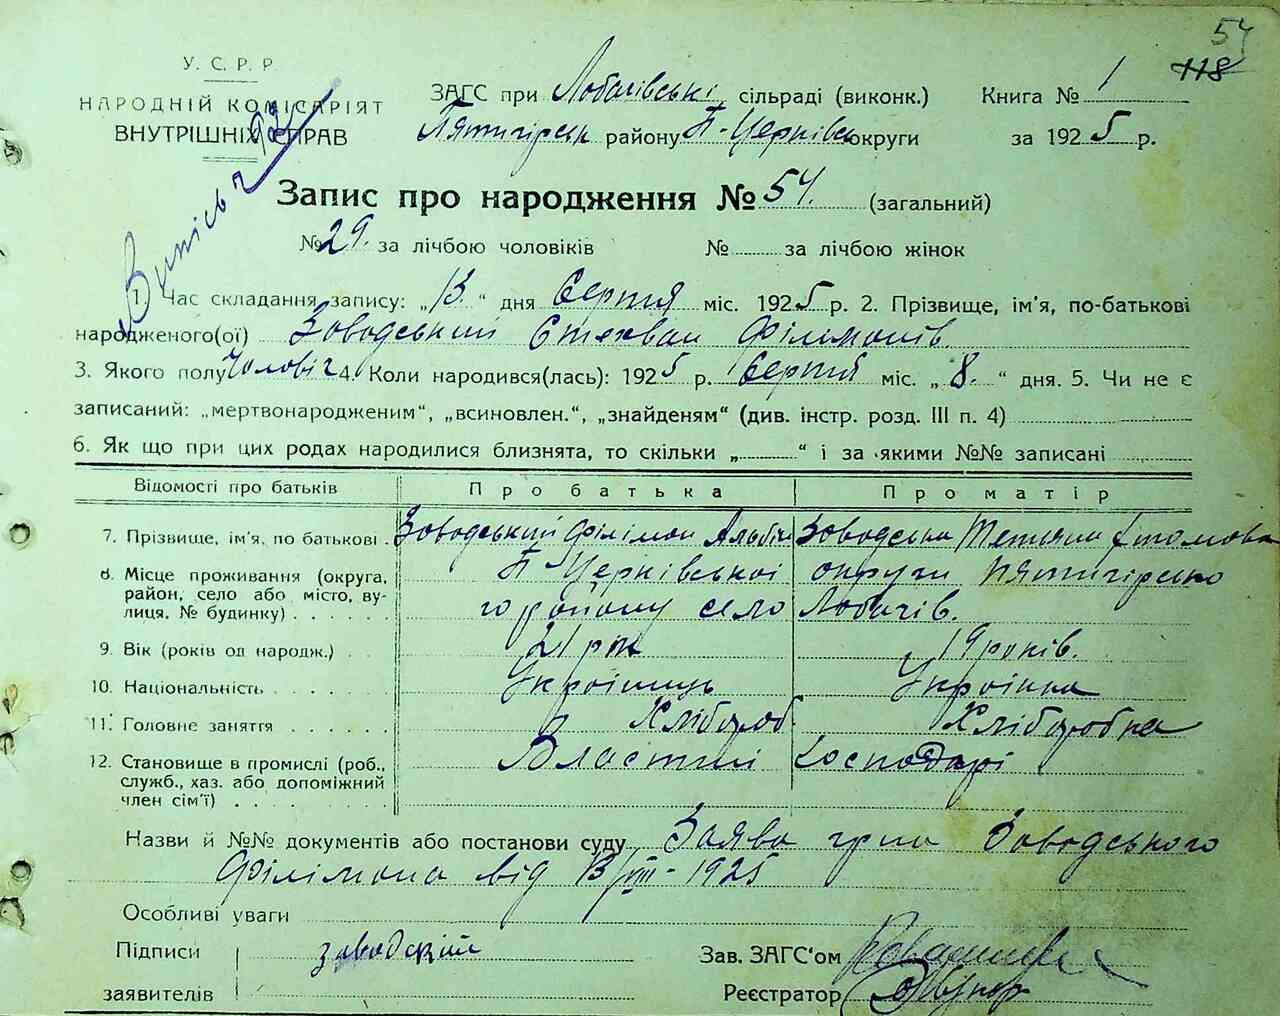 54
118
У. С. Р. Р.
НАРОДНІЙ КОМІСАРІЯТ
ВНУТРІШНІХ СПРАВ
ЗАГС при Лобачівські сільраді (виконк.) Книга № 1
Пятигірськ району Б-Церківськ округи за 1925 р.
Запис про народження № 54. (загальний)
№ 29. за лічбою чоловіків № за лічбою жінок
1. Час складання запису: „13“ дня Серпня міс. 1925 р. 2. Прізвище, ім'я, по-батькові
народженого(ої) Заводський Стехван Філімонів.
3. Якого полу Чоловіч 4. Коли народився(лась): 1925 р. Серпня міс. „8.“ дня. 5. Чи не є
записаний: „мертвонародженим“, „всиновлен.“, „знайденям“ (див. інстр. розд. III п. 4)
6. Як що при цих родах народилися близнята, то скільки „ “ і за якими №№ записані
Відомості про батьків Про батька Про матір
7. Прізвище, ім'я, по батькові . Заводський Філімон Альбін Заводська Тетяна
8. Місце проживання (округа, Б Церківської округи Пятигірсько
район, село або місто, ву- го району село Лобачів.
лиця, № будинку) . . . . . .
9. Вік (років од народж.) . . 21 рік 19 років.
10. Національність . . . . . . . Українець Українка
11. Головне заняття . . . . . . Хлібороб Хліборобка
12. Становище в промислі (роб., Властні Господарі
служб., хаз. або допоміжний
член сім'ї) . . . . . . . . .
Назви й №№ документів або постанови суду Заява гр-на Заводського
Філімона від 13/VIII-1925
Особливі уваги
Підписи заводский Зав. ЗАГС'ом
заявителів Реєстратор